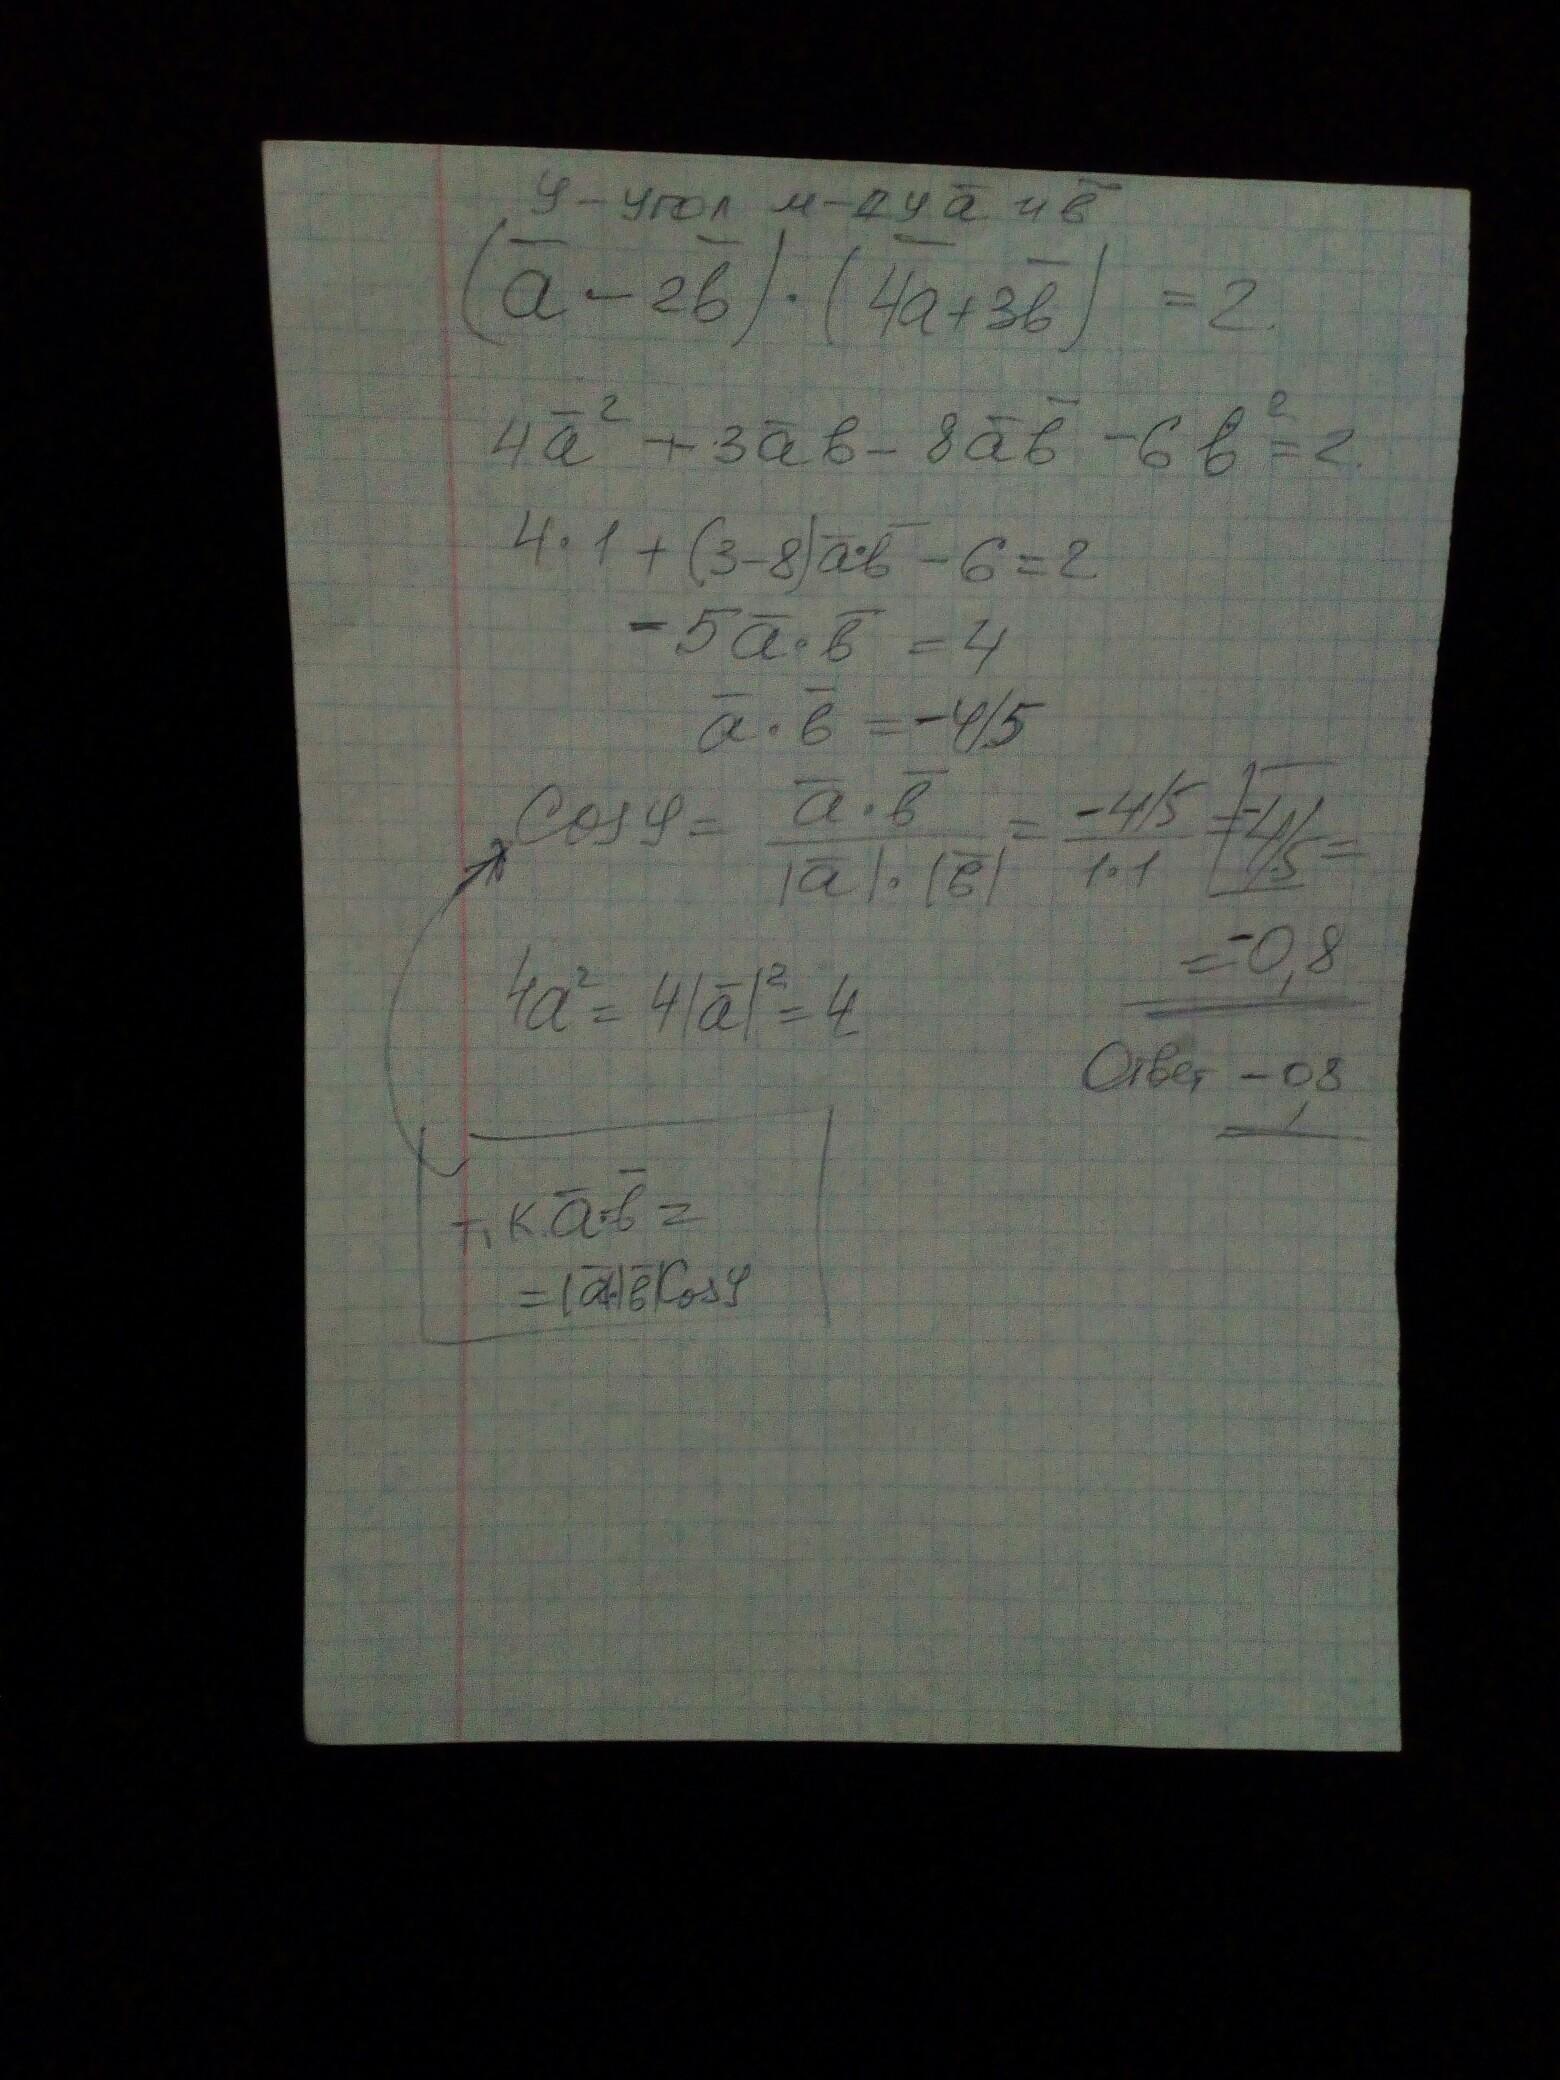 φ – угол м-ду a̅ и b̅
(a̅ – 2b̅) · (4a̅ + 3b̅) = 2.
4a̅² + 3a̅b – 8a̅b̅ – 6b² = 2.
4·1 + (3–8)a̅·b̅ – 6 = 2
–5a̅·b̅ = 4
a̅·b̅ = –4/5
Cosφ = a̅·b̅ / |a̅|·|b̅| = –4/5 / 1·1 = –4/5 =
= –0,8
4a² = 4|a̅|² = 4
Ответ –0,8
т.к. a̅·b̅ =
= |a̅|·|b̅|Cosφ